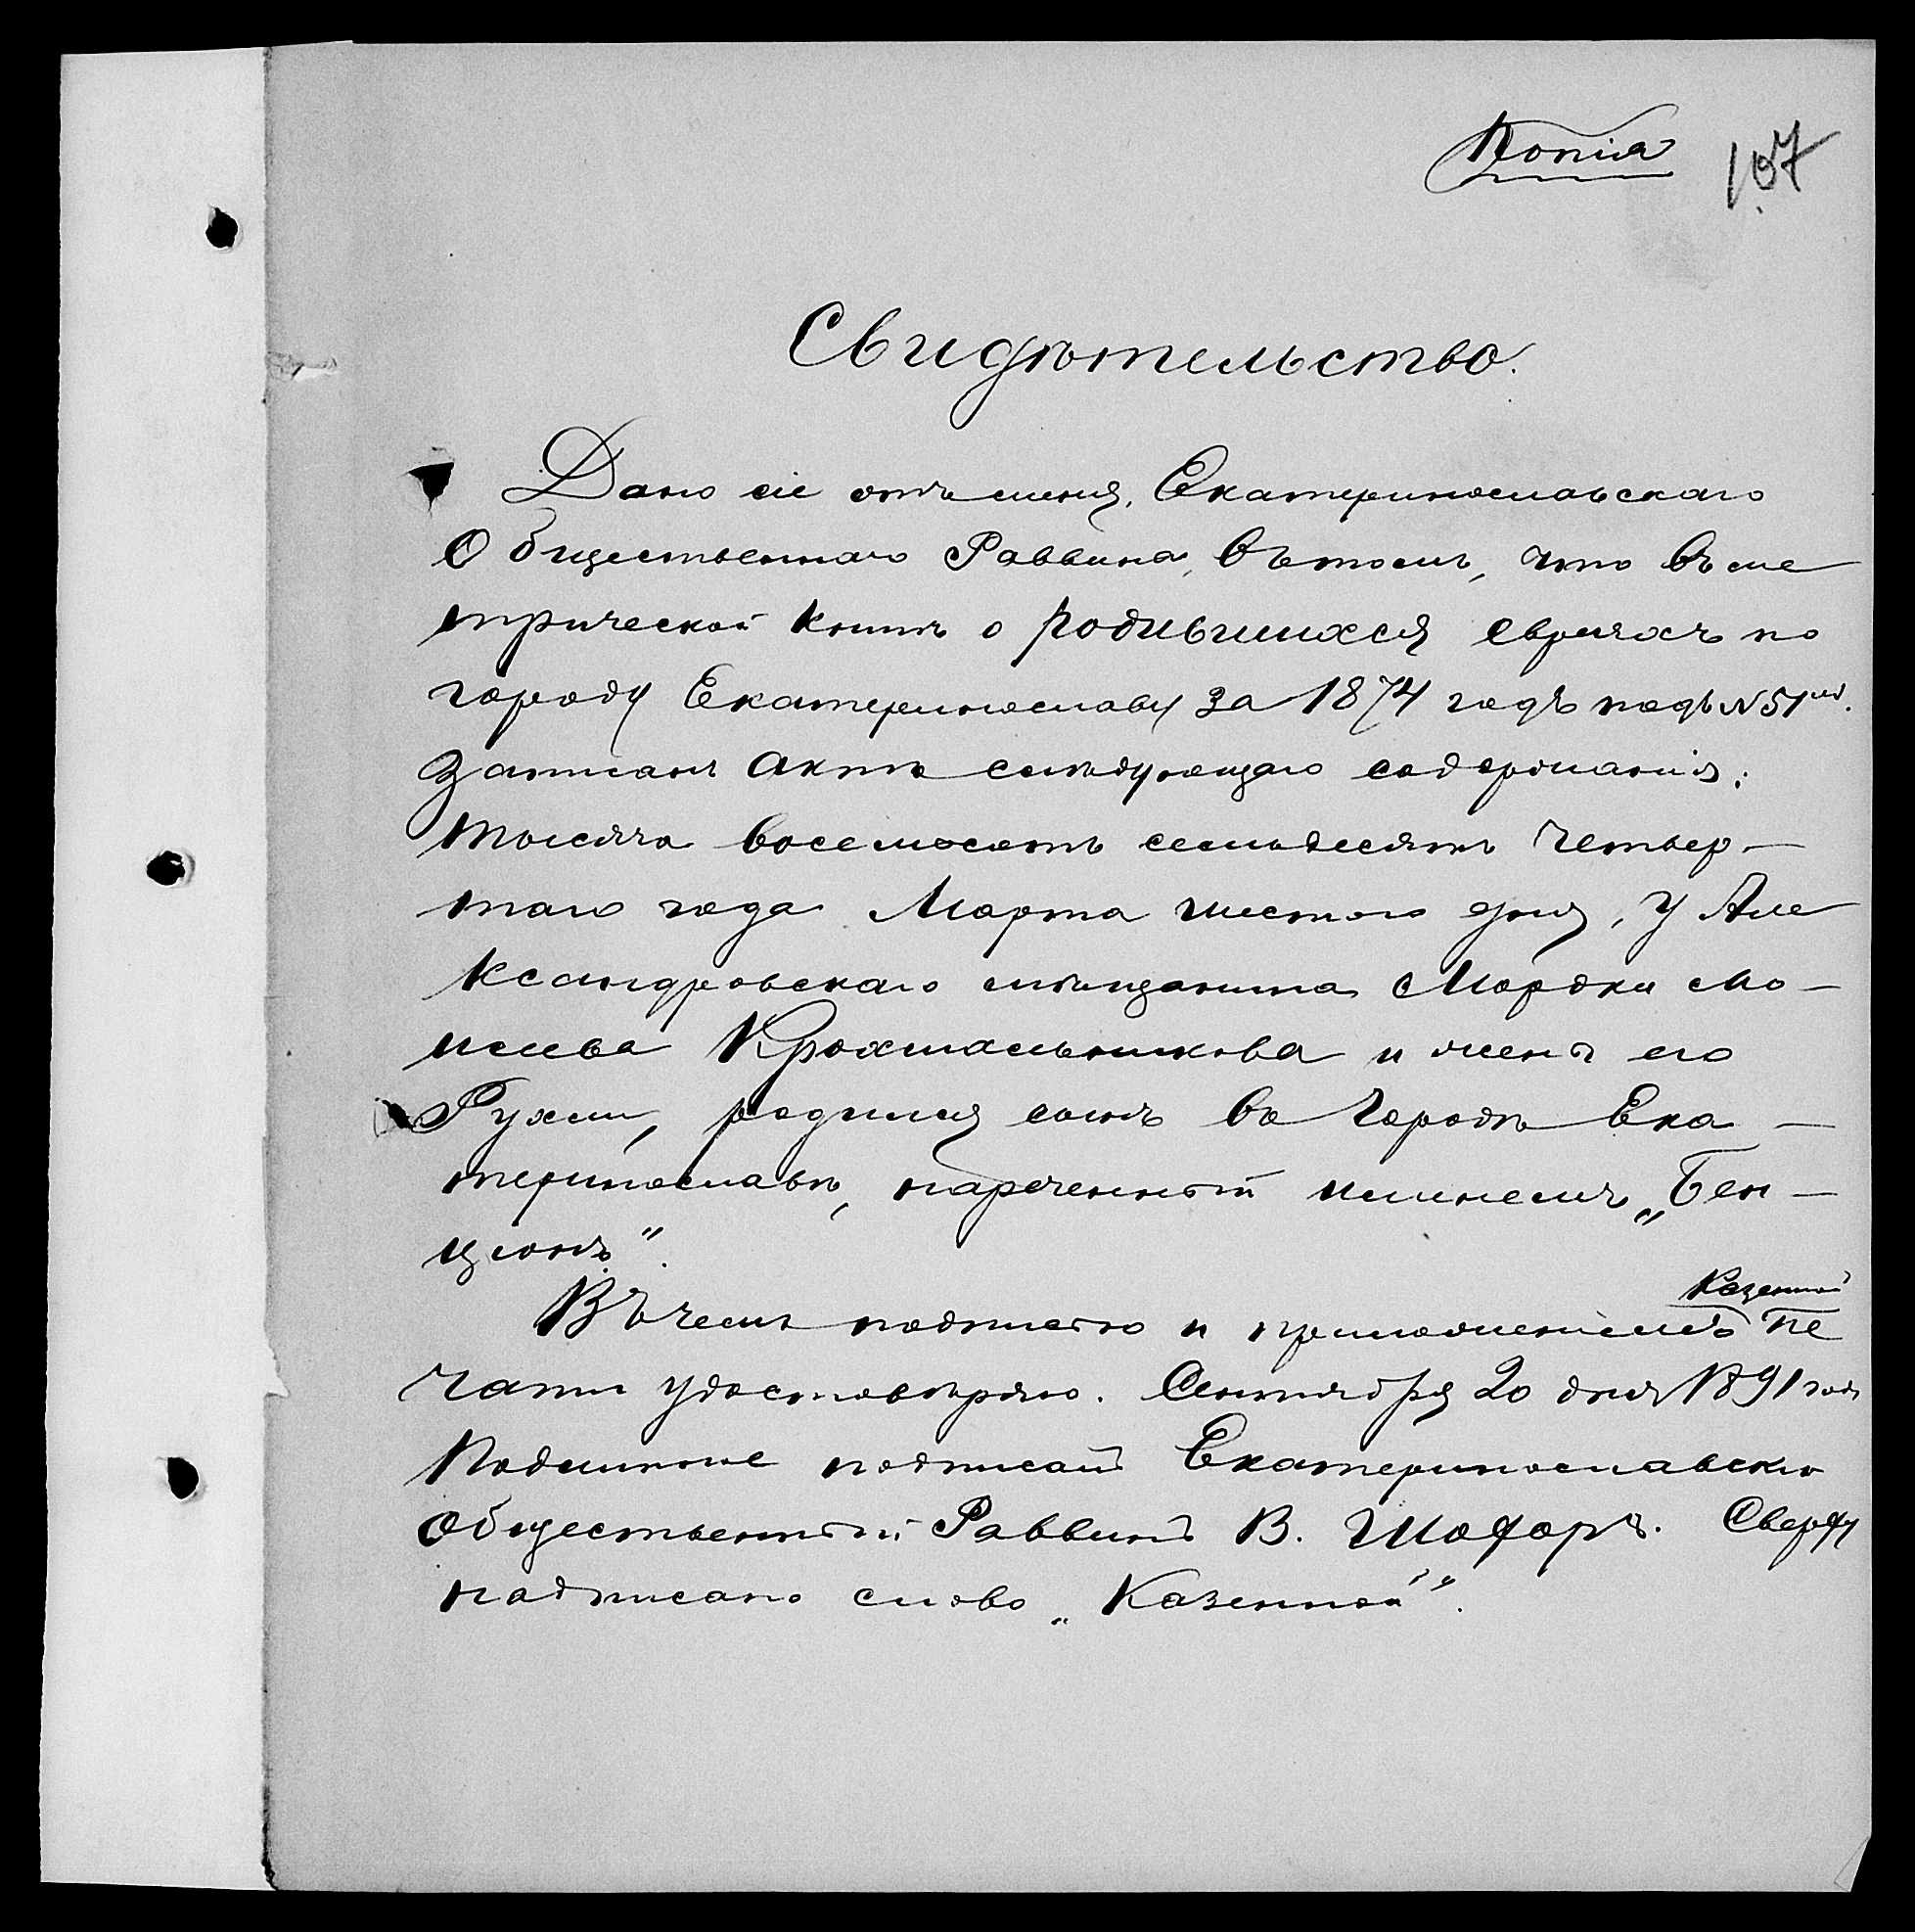 Копія
107
Свидѣтельство.
Дано сіе отъ меня, Екатеринославскаго
Общественнаго Раввина, въ томъ, что въ ме
трической книгѣ о родившихся евреяхъ по
городу Екатеринославу за 1874 годъ подъ N 51 м.
записанъ актъ слѣдующаго содержанія:
тысяча восемьсотъ семьдесятъ четвер-
таго года Марта шестого дня, у Але
ксандровскаго мѣщанина Мордки Мо-
исеева Крохмальникова и жены его
Рухли, родился сынъ въ городѣ Ека-
теринославѣ, нареченный именемъ „Бен-
ціонъ".
Казенной
Въ чемъ подписью и приложеніемъ пе
чати удостовѣряю. Сентября 20 дня 1891 года
Подлинное подписалъ Екатеринославскій
Общественный Раввинъ В. Шофоръ. Сверху
надписано слово „Казенной".